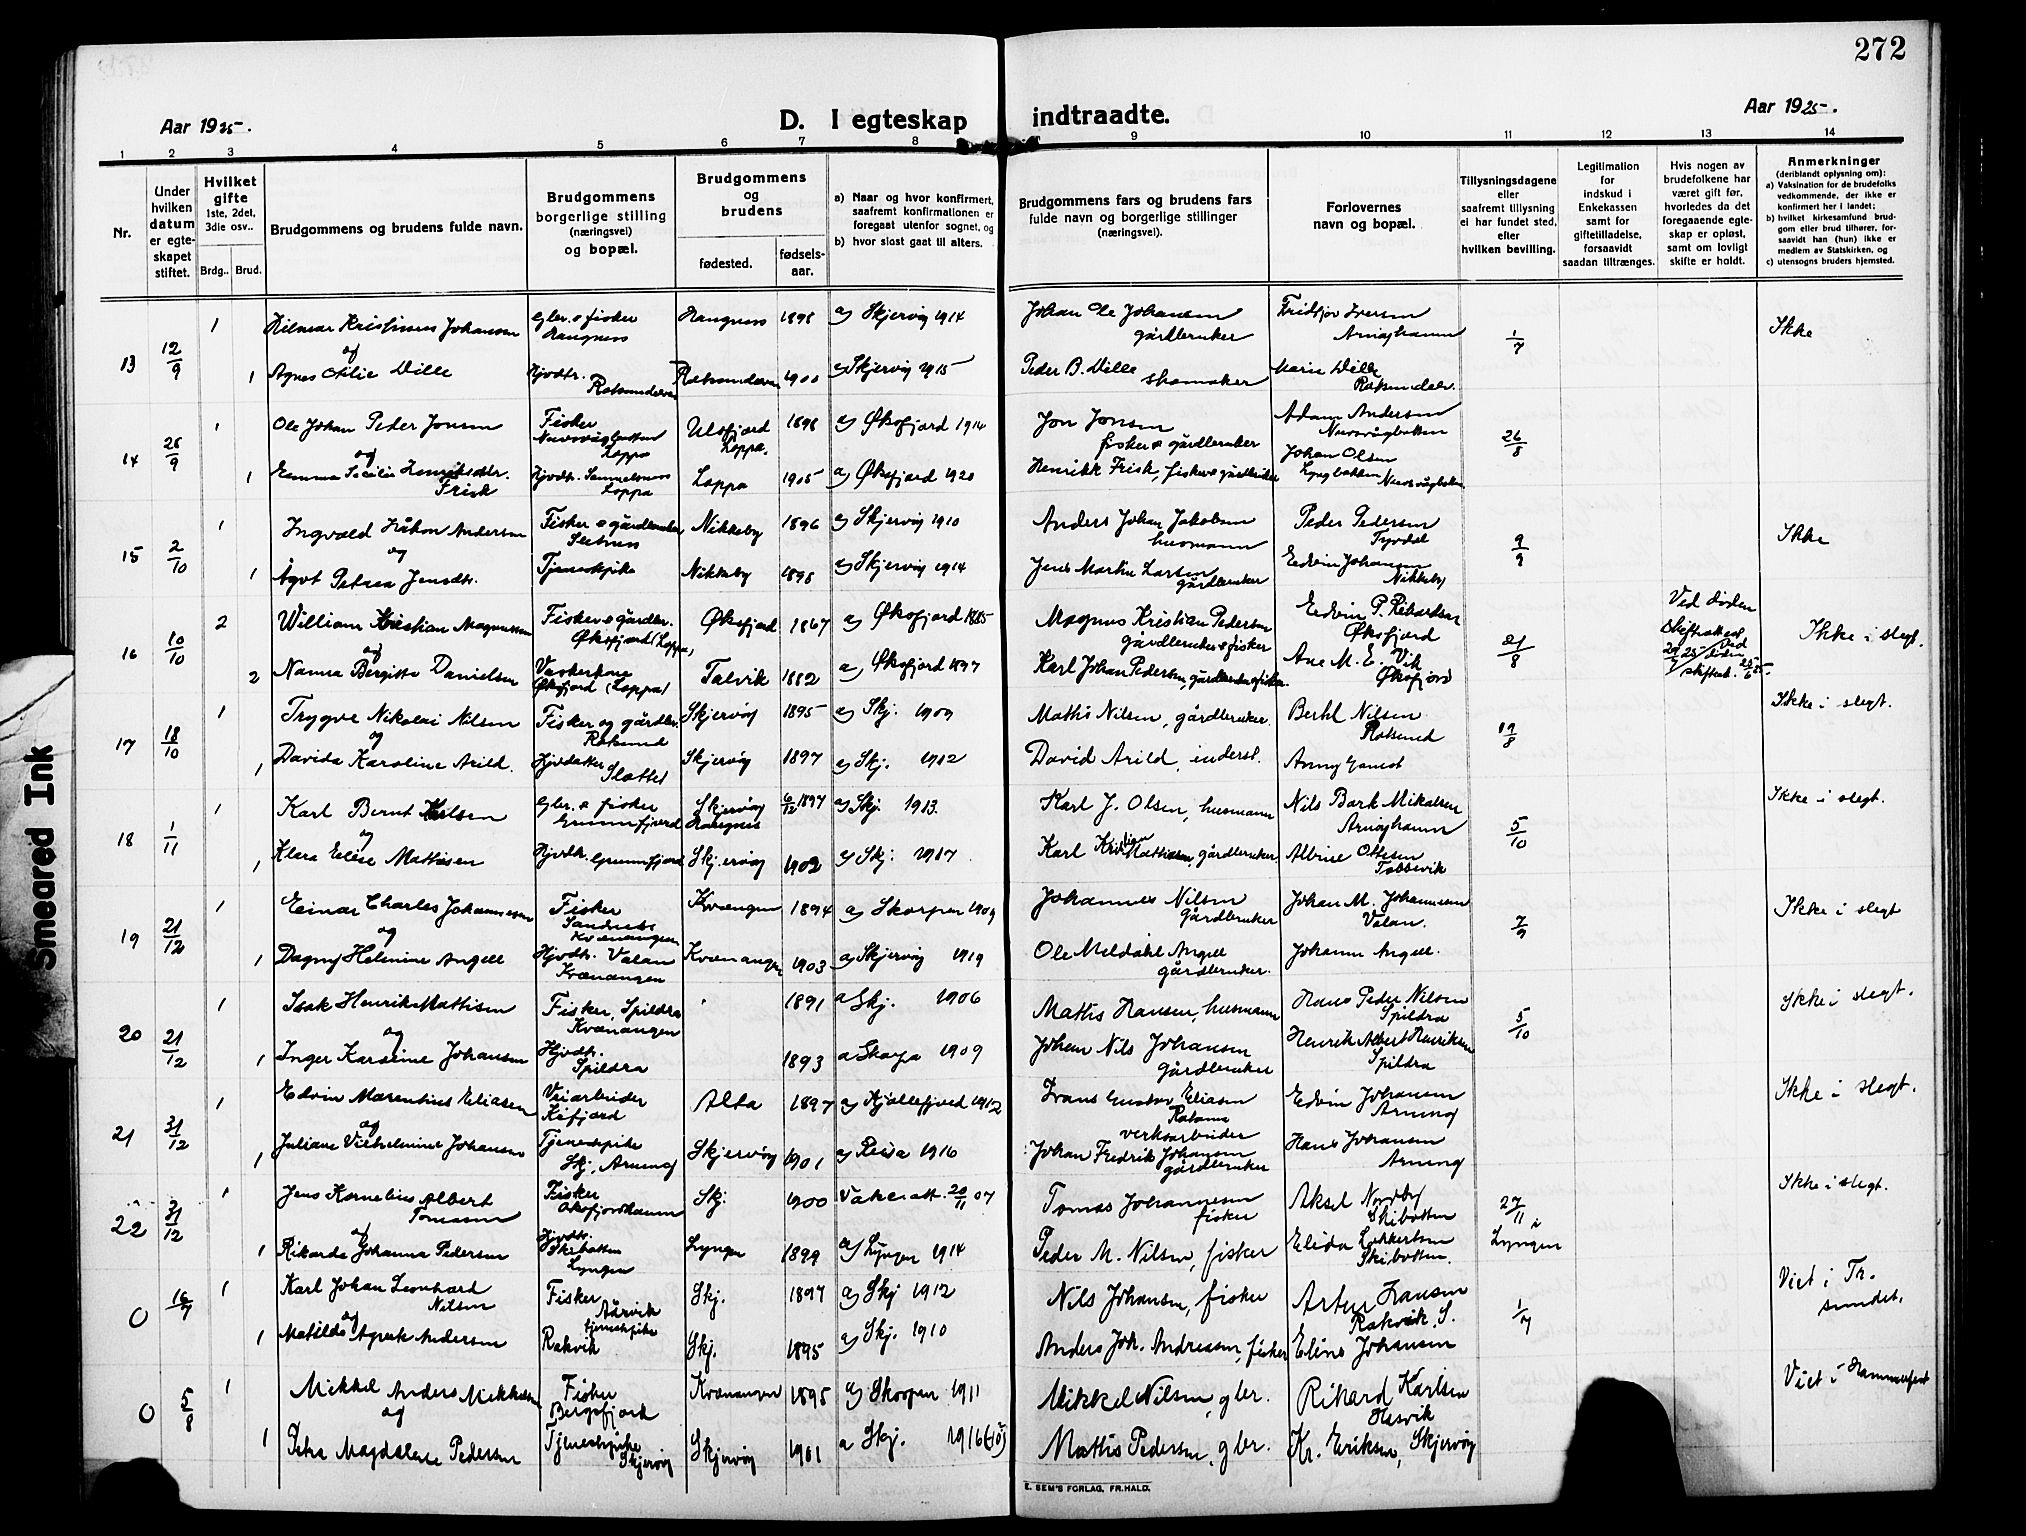 272
Aar 1925.
D. I egteskap indtraadte.
Aar 1925.
1 2 3 4 5 6 7 8 9 10 11 12 13 14
Nr.
Under hvilken datum er egteskapet stiftet.
Hvilket gifte 1ste, 2det, 3die osv..
Brdg.. Brud.
Brudgommens og brudens fulde navn.
Brudgommens borgerlige stilling (næringsvei) og bopæl.
Brudgommens og brudens
fødested.
fødselsaar.
a) Naar og hvor konfirmert, saafremt konfirmationen er foregaat utenfor sognet, og
b) hvor sidst gaat til alters.
Brudgommens fars og brudens fars fulde navn og borgerlige stillinger (næringsvei).
Forlovernes navn og bopæl.
Tillysningsdagene eller saafremt tillysning ei har fundet sted, efter hvilken bevilling.
Legitimation for indskud i Enkekassen samt for giftetilladelse, forsaavidt saadan tiltrænges.
Hvis nogen av brudefolkene har været gift før, hvorledes da det foregaaende egteskap er opløst, samt om lovligt skifte er holdt.
Anmerkninger (deriblandt oplysning om):
a) Vaksination for de brudefolks vedkommende, der ikke er konfirmert her i landet;
b) hvilket kirkesamfund brudgom eller brud tilhører, forsaavidt han (hun) ikke er medlem av Statskirken, og
c) utensogns bruders hjemsted.
13 12/9 1 Hilmar Kristinus Johansen gbr. & fisker Hangnes Hangnes 1898 a) Skjervøy 1914 Johan Ole Johansen gårdbruker Fridtjov Iversen Arnøyhamn 1/7 Ikke
og
1 Agnes Otilie Wille Hjvdtr. Rotsundelven Rotsundelven 1900 a) Skjervøy 1915 Peder B. Wille skomaker Marie Wille Rotsundelv.
14 26/9 1 Ole Johan Peder Jonsen Fisker Nuvsvågbotten Loppa Ulsfjord Loppa. 1898 a) Øksfjord 1914 Jon Jonsen fisker & gårdbruker Adam Andersen Nuvsvågbotten 26/8
og
1 Emma Secilie Henriksdtr. Frisk Hjvdtr. Samuelsnes Loppa Loppa 1905 a) Øksfjord 1920 Henrikk Frisk, fisker & gårdbruker Johan Olsen Nuvsvågbotten
15 2/10 1 Ingvald Håkon Andersen Fisker & gårdbruker Nikkeby 1896 a) Skjervøy 1910 Anders Johan Jakobsen husmann Peder Pedersen 9/9 Ikke
og
1 Ågot Petrea Jensdtr. Tjenestpike Nikkeby 1898 a) Skjervøy 1914 Jens Martin Larsen gårdbruker Edvin Johansen Nikkeby
16 10/10 2 William Kristian Magnussen Fisker & gårdbr. Øksfjord (Loppa) Øksfjord 1867 a) Øksfjord 1885 Magnus Kristian Pedersen gårdbruker & fisker Edvin P. Rikardsen Øksfjord 21/8 Ved døden Skifteattest Ikke i slegt.
og
2 Nanna Bergitte Danielsen Vaskerkone Øksfjord (Loppa) Talvik 1882 a) Øksfjord 1897 Karl Johan Pedersen, gårdbruker & fisker Ane M. E. Vik Øksfjord
17 18/10 1 Trygve Nikolai Nilsen Fisker og gårdbr. Rotsund Skjervøy 1895 a) Skj. 1909 Mathis Nilsen, gårdbruker. Berhl Nilsen Rotsund 17/8 Ikke i slegt.
og
1 Davida Karoline Arild. Hjvdatter Slottet Skjervøy 1897 a) Skj. 1912 David Arild, inderst.
18 1/11 1 Karl Bernt Karlsen gbr. & fisker Grunnfjord Skjervøy Hangnes 6/12 1897 a) Skj. 1913. Karl J. Olsen, husmann Nils Bark Mikalsen Arnøyhamn 5/10 Ikke i slegt.
og
1 Klara Elise Mattisen Hjvdtr. Grunnfjord Skjervøy 1902 a) Skj. 1917. Karl Kristian Mattisen, gårdbruker. Albine Ottesen
19 21/12 1 Einar Charles Johannesen Fisker Sandnes Kvænangen Kvænangen 1894 a) Skorpen 1909 Johannes Nilsen gårdbruker Johan M. Johannesen Valan. 7/9 Ikke i slegt
og
1 Dagny Helmine Angell Hjvdtr. Valan Kvænangen Kvænangen 1903 a) Skjervøy 1919 Ole Meldahl Angell gårdbruker. Johanne Angell.
20 21/12 1 Isak Henrik Mattisen Fisker, Spildra Kvænangen 1891 a Skj. 1906 Mattis Hansen, husmann Hans Peder Nilsen Spildra 5/10 Ikke i slegt.
og
1 Inger Karoline Johansen Hjvdtr. Spildra 1893 a Skorpa 1909 Johan Nils Johansen gårdbruker Henrik Albert Henriksen Spildra
21 31/12 1 Edvin Marentius Eliasen Veiarbeider Alta 1897 a) Kjøllefjord 1912 Frans Gustav Eliasen verksarbeider Edvin Johansen Arnøy Ikke i slegt.
og
1 Juliane Vilhelmine Johansen Tjenestpike Skj. Arnøy Skjervøy 1901 a) Reisa 1916 Johan Fredrik Johansen gårdbruker Hans Johansen Arnøy
22 31/12 1 Jens Kornelius Albert Tomassen Fisker Skj. 1900 Vakc. att. 20/11 07 Tomas Johannesen fisker Aksel Nordby Skibotten 27/11 i Lyngen Ikke i slegt.
og
1 Rikarda Johanna Pedersen Hjvdtr. Skibotten Lyngen Lyngen 1899 a) Lyngen 1914 Peder M. Nilsen, fisker Elida Lekkertsen Skibotten.
0 16/7 1 Karl Johan Leonhard Nilsen Fisker Årvik Skj. 1897 a) Skj 1912 Nils Johansen, fisker Artur Hansen Rakvik, S. 1/7 Viet i Tr. sundet.
og
1 Matilde Agnete Andersen tjenestpike Rakvik Skj. 1895 a) Skj. 1910 Anders Joh. Andreassen, fisker Eline Johansen
0 5/8 1 Mikkel Anders Mikkelsen Fisker Bergsfjord Kvænangen 1895 a) Skorpen 1911 Mikkel Nilsen, gbr. Rikard Karlsen Viet i Hammerfest
og
1 Petra Magdalene Pedersen Tjenestpike Skjervøy Skjervøy 1901 a Skj. 1916 Mattis Pedersen, gbr. Kr. Eriksen, Skjervøy
E. SEM'S FORLAG, FR.HALD.
Smeared Ink